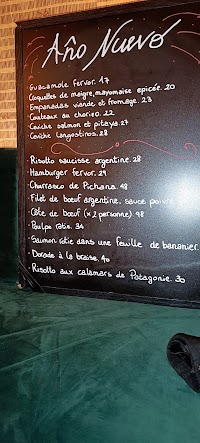 Año Nuevo
Guacamole fervor. 17
Croquettes de maigre, mayonaise épicée. 20
Empanadas viande et fromage. 23
Couteaux au chorizo. 22
Ceviche salmon et pitaya. 27
Ceviche langostinos. 28
· Risotto saucisse argentine. 28
· Hamburger fervor. 29
· Churrasco de Pichana. 48
· Filet de bœuf argentine, sauce poivre
· Côte de bœuf (x 2 personne). 98
· Poulpe rôtie. 34
· Saumon rôtie dans une feuille de bananier.
· Dorade à la braise. 40
· Risotto aux calamars de Patagonie. 30